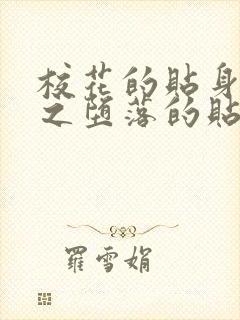 校花的貼身
之堕落的貼
羅雪娟